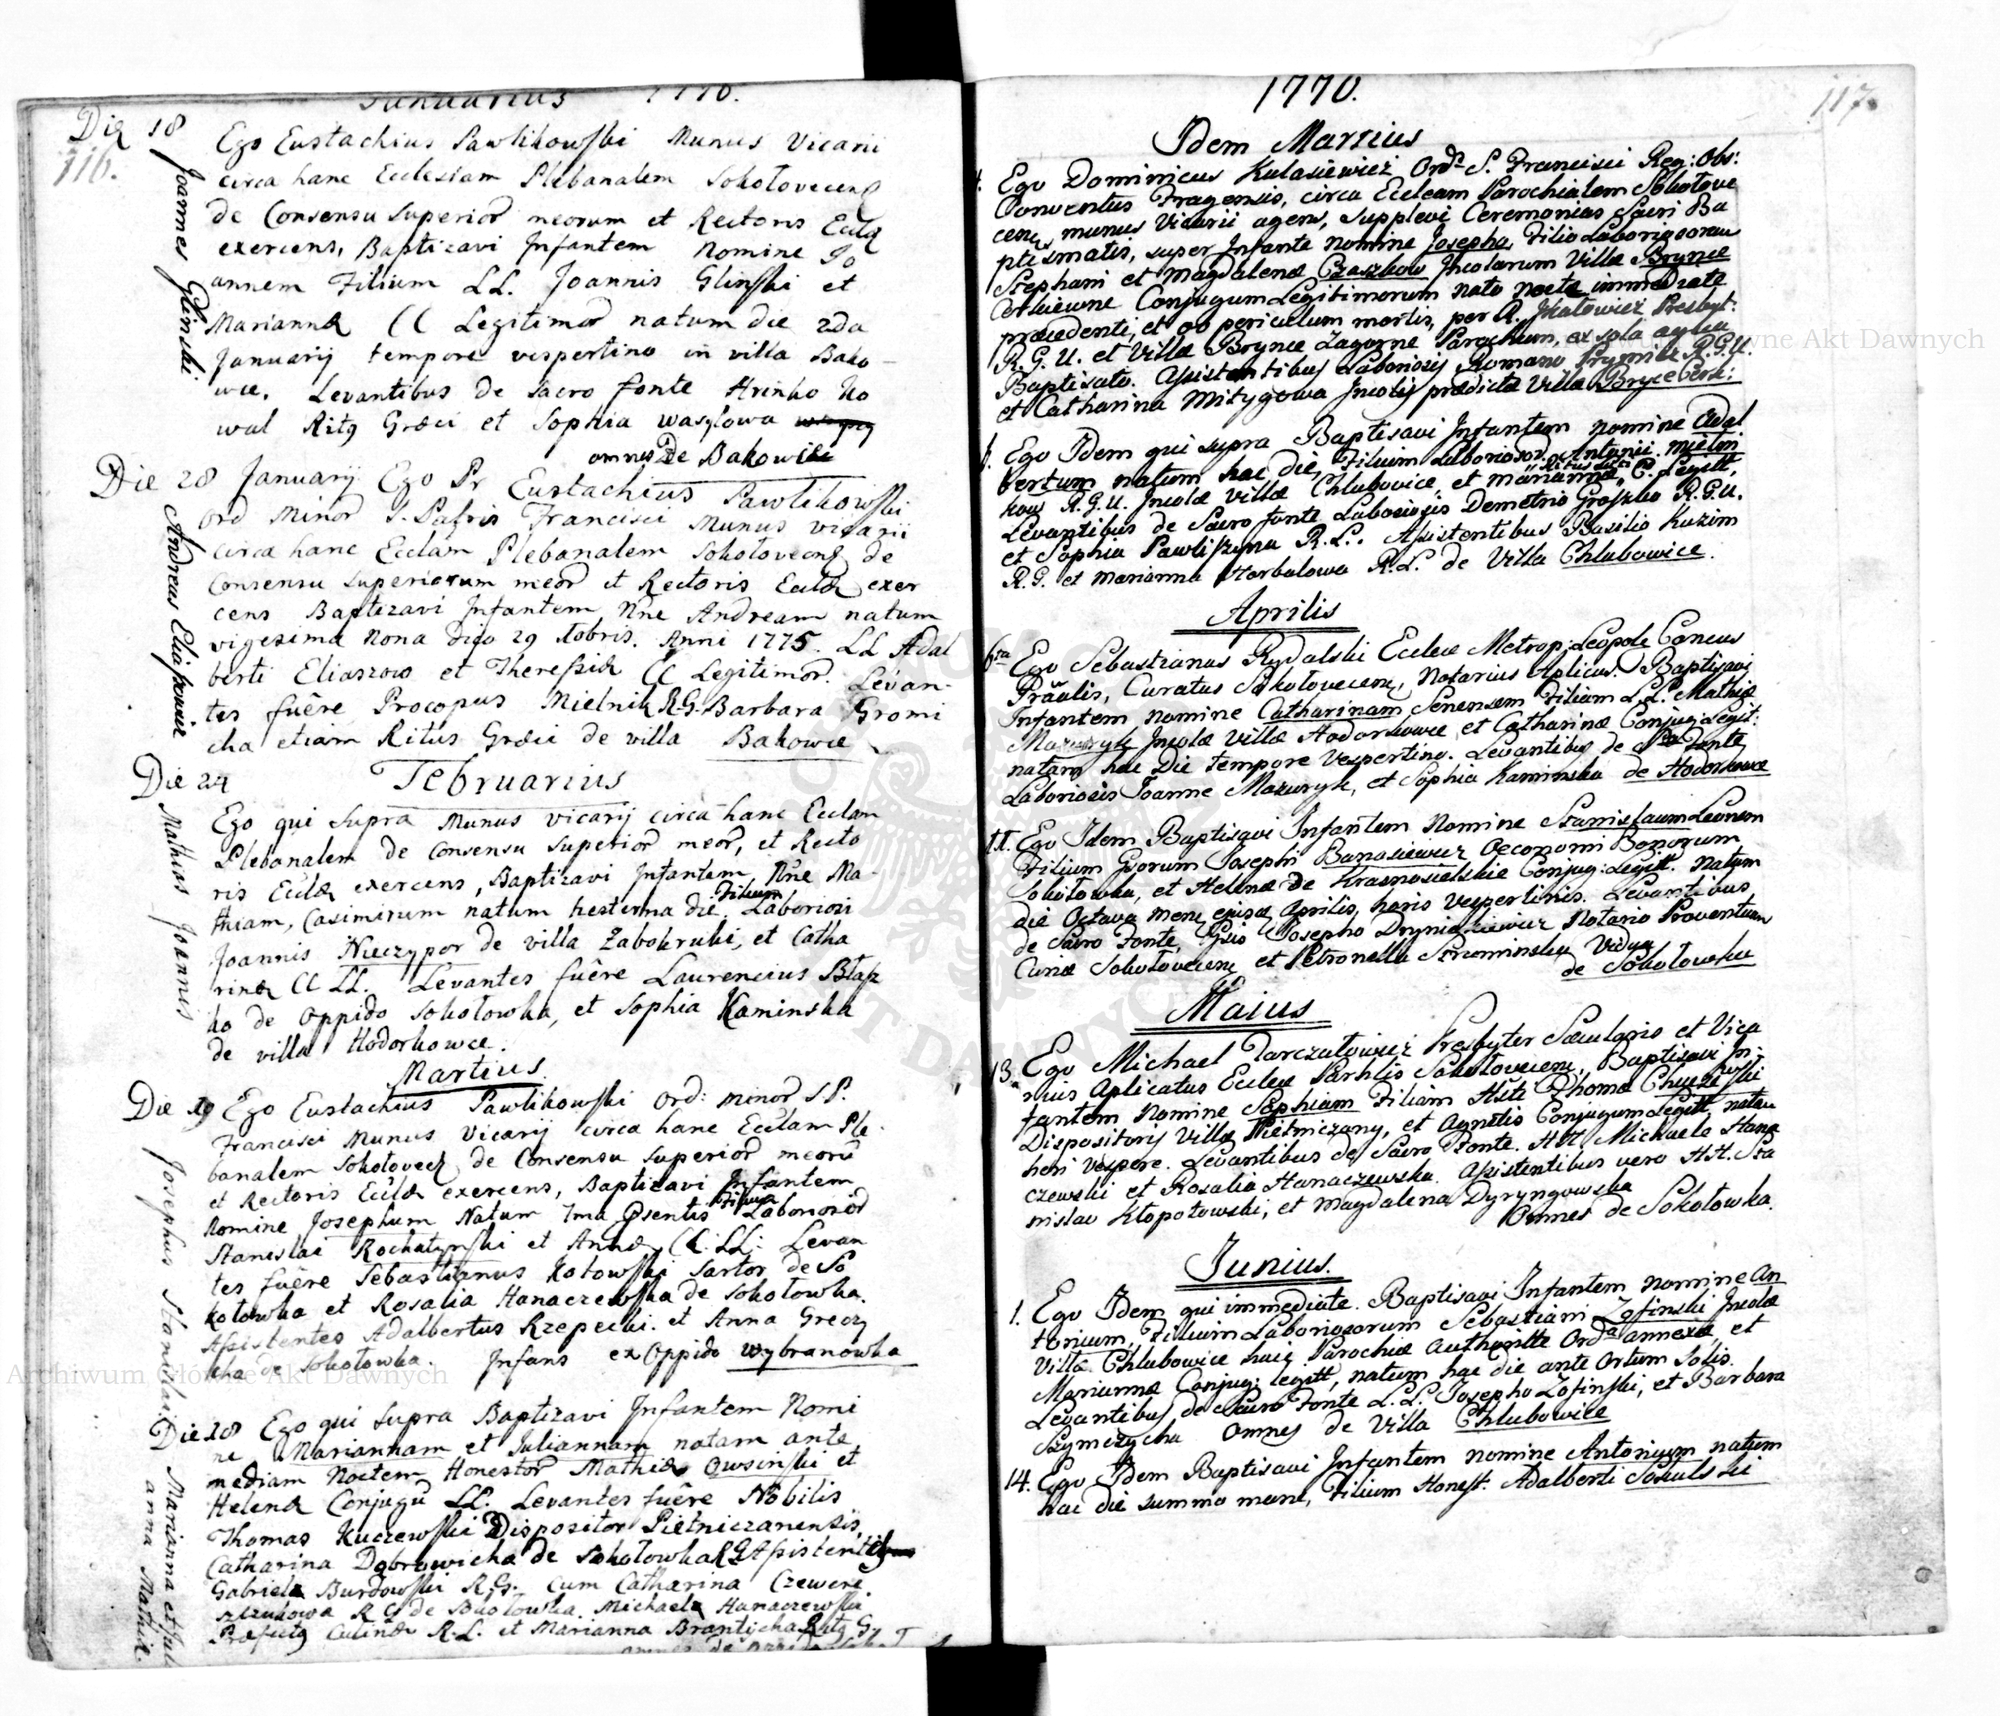 Januarius 1770.
Die 18
116.
Joannes Glinski
Ego Eustachius Pawlikowski Munus Vicarii
circa hanc Ecclesiam Plebanalem Sokołovecens
de Consensu Superior meorum et Rectoris Eccla
exercens, Baptizavi Infantem Nomine Jo
annem Filium LL. Joannis Glinski et
Mariannæ CC Legitimor natum die 2da
Januarij tempore vespertino in villa Bako-
wce. Levantibus de Sacro fonte Hrinko Ko
wal Ritg Græci et Sophia Wasylowa
omnes De Bakowice
Die 28 Januarij Ego Pr Eustachius Pawlikowski
Andreas Eliaszowic
Ord Minor S. Patris Francisci Munus vicarii
circa hanc Ecclam Plebanalem Sokołovecens de
Consensu Superiorum meor et Rectoris Eccla exer
cens Baptizavi Infantem Nne Andream natum
vigesima nona dico 29 Xobris. Anni 1775. LL Adal
berti Eliaszow et Theressiæ CC Legitimor. Levan-
tes fuêre Procopus Mielnik R.G. Barbara Hromi
cha etiam Ritus Græci de villa Bakowce
Februarius
Die 24
Mathias Joannis
Ego qui supra Munus vicarij circa hanc Ecclam
Plebanalem de Consensu Superior meor, et Recto
ris Eccla exercens, Baptizavi Infantem Nne Ma-
thiam, Casimirum natum hesterna die Filium Laboriosi
Joannis Nieczypor de villa Zabokruki, et Catha
rinæ CC LL. Levantes fuêre Laurencius Błasz
ko de Oppido Sokołowka, et Sophia Kaminska
de villa Hodorkowce.
Martius.
Die 19
Josephus Stanislai
Ego Eustachius Pawlikowski Ord: Minor S P.
Francisci Munus Vicarij circa hanc Ecclam Ple-
banalem Sokołovecens de Consensu Superior meorū
et Rectoris Eccla exercens, Baptizavi Infantem
Nomine Josephum Natum 7ma Psentis Filium Laboriosior
Stanislai Rochatynski et Annæ CC. LL: Levan
tes fuêre Sebastianus Kotowski Sartor de So
kołowka et Rosalia Hanaczewska de Sokołowka.
Assistentes Adalbertus Rzepecki. et Anna Greczy
cha de Sokołowka. Infans ex Oppido Wybranowka
Die 28
Marianna et Juli
anna Mathiæ
Ego qui supra Baptizavi Infantem Nomi
ne Mariannam et Juliannam natam ante
mediam Noctem Honestor Mathiæ Owsinski et
Helenæ Conjugū LL. Levantes fuêre Nobilis
Thomas Kuczewski Dispositor Pietniczanensis
Catharina Dobrowicka de Sokołowka R G Assistent
Gabriele Burdowski R.G. cum Catharina Czewere
szczukowa R G de Sokołowka. Michaele Hanaczewski
Præfecto Culinæ R.L. et Marianna Branticha Ritg G
omnes de
1770. 117.
Idem Martius
Ego Dominicus Kulasiewicz Ordis S. Francisci Reg: Obs:
Conventus Fragensis, circa Eccleam Parochialem Sokołove
cens, munus Vicarii agens, supplevi Ceremonias Sacri Ba
ptismatis, super Infante nomine Josepho, Filio Laboriosorum
Stephani et Magdalenæ Czaszkow Incolarum Villæ Brynce
Cerkiewne Conjugum Legitimorum nato nocte immediate
præcedenti, et ob periculum mortis, per R. Ihatowicz Presbyt:
R. G. U. et Villæ Brynce Zagorne Parochum, ex sola aqua
Baptisato. Assistentibus Laboriosis Romano Prymik R.G.U.
et Catharina Mitygowa Incolis prædictæ Villæ Bryce Cerk:
Ego Idem qui supra Baptisavi Infantem nomine Adal
bertum natum hac die, Filium Laboriosor. Antonii Mielni
kow R.G.U. Incolæ Villæ Chlubovice et Mariannæ Ritus Lat: C. Legitt,
Levantibus de Sacro fonte Laboriosis Demetrio Groszko R.G.U.
et Sophia Pawliszyna R.L. Assistentibus Basilio Kuzim
R.G. et Marianna Horbalowa R.L. de Villa Chlubowice.
Aprilis
6ta Ego Sebastianus Rydalski Ecclea Metrop: Leopol: Concus
Præalis, Curatus Sokołovecens, Notarius Aplicus. Baptisavi
Infantem nomine Catharinam Senensem Filiam L.L. Mathiæ
Mazuryk Incolæ Villæ Hodorkowce et Catharinæ Conjug. Legit:
natam hac die tempore Vespertino. Levantibus de Sacro Fonte
Laboriosis Joanne Mazuryk, et Sophia Kaminska de Hodorkowce
11. Ego Idem Baptisavi Infantem Nomine Stanislaum Leonem
Filium Gsorum Josephi Banasiewicz Oeconomi Bonorum
Sokołowka, et Helenæ de Krasnosielskie Conjug: Legitt. natum
die Octava mens ejusd Aprilis, horis Vespertinis. Levantibus
de Sacro Fonte, Gso Josepho Dryniaskiewicz Notario Proventuum
Curiæ Sokołovecens et Petronella Struminska Vidua
de Sokołowka
Maius
13. Ego Michael Tarczatowicz Presbyter Sæcularis et Vica
rius Aplicatus Ecclea Parhlis Sokołovecens, Baptisavi In-
fantem nomine Sophiam Filiam Hsti Thomæ Chuczewski
Dispositorij Villæ Pietniczany, et Agnetis Conjugum Legitt, natam
heri vespere. Levantibus de Sacro Fonte. HH Michaele Hana
czewski et Rosalia Hanaczewska. Assistentibus vero HH. Sta
nislao Kłopotowski, et Magdalena Dyryngowska
Omnes de Sokołowka.
Junius.
1. Ego Idem qui immediate. Baptisavi Infantem nomine An
tonium, Filium Laboriosorum Sebastiani Zofinski Incolæ
Villæ Chlubowice huic Parochiæ Authoritte Orda annexæ, et
Mariannæ Conjug: legitt, natum hac die ante Ortum Solis.
Levantibus de Sacro Fonte L.L. Josepho Zofinski, et Barbara
Szymczycha omnes de Villa Chlubowice
14. Ego Idem Baptisavi Infantem nomine Antonium natum
hac die summo mane, Filium Honest: Adalberti Sokulski
Archiwum Główne Akt Dawnych